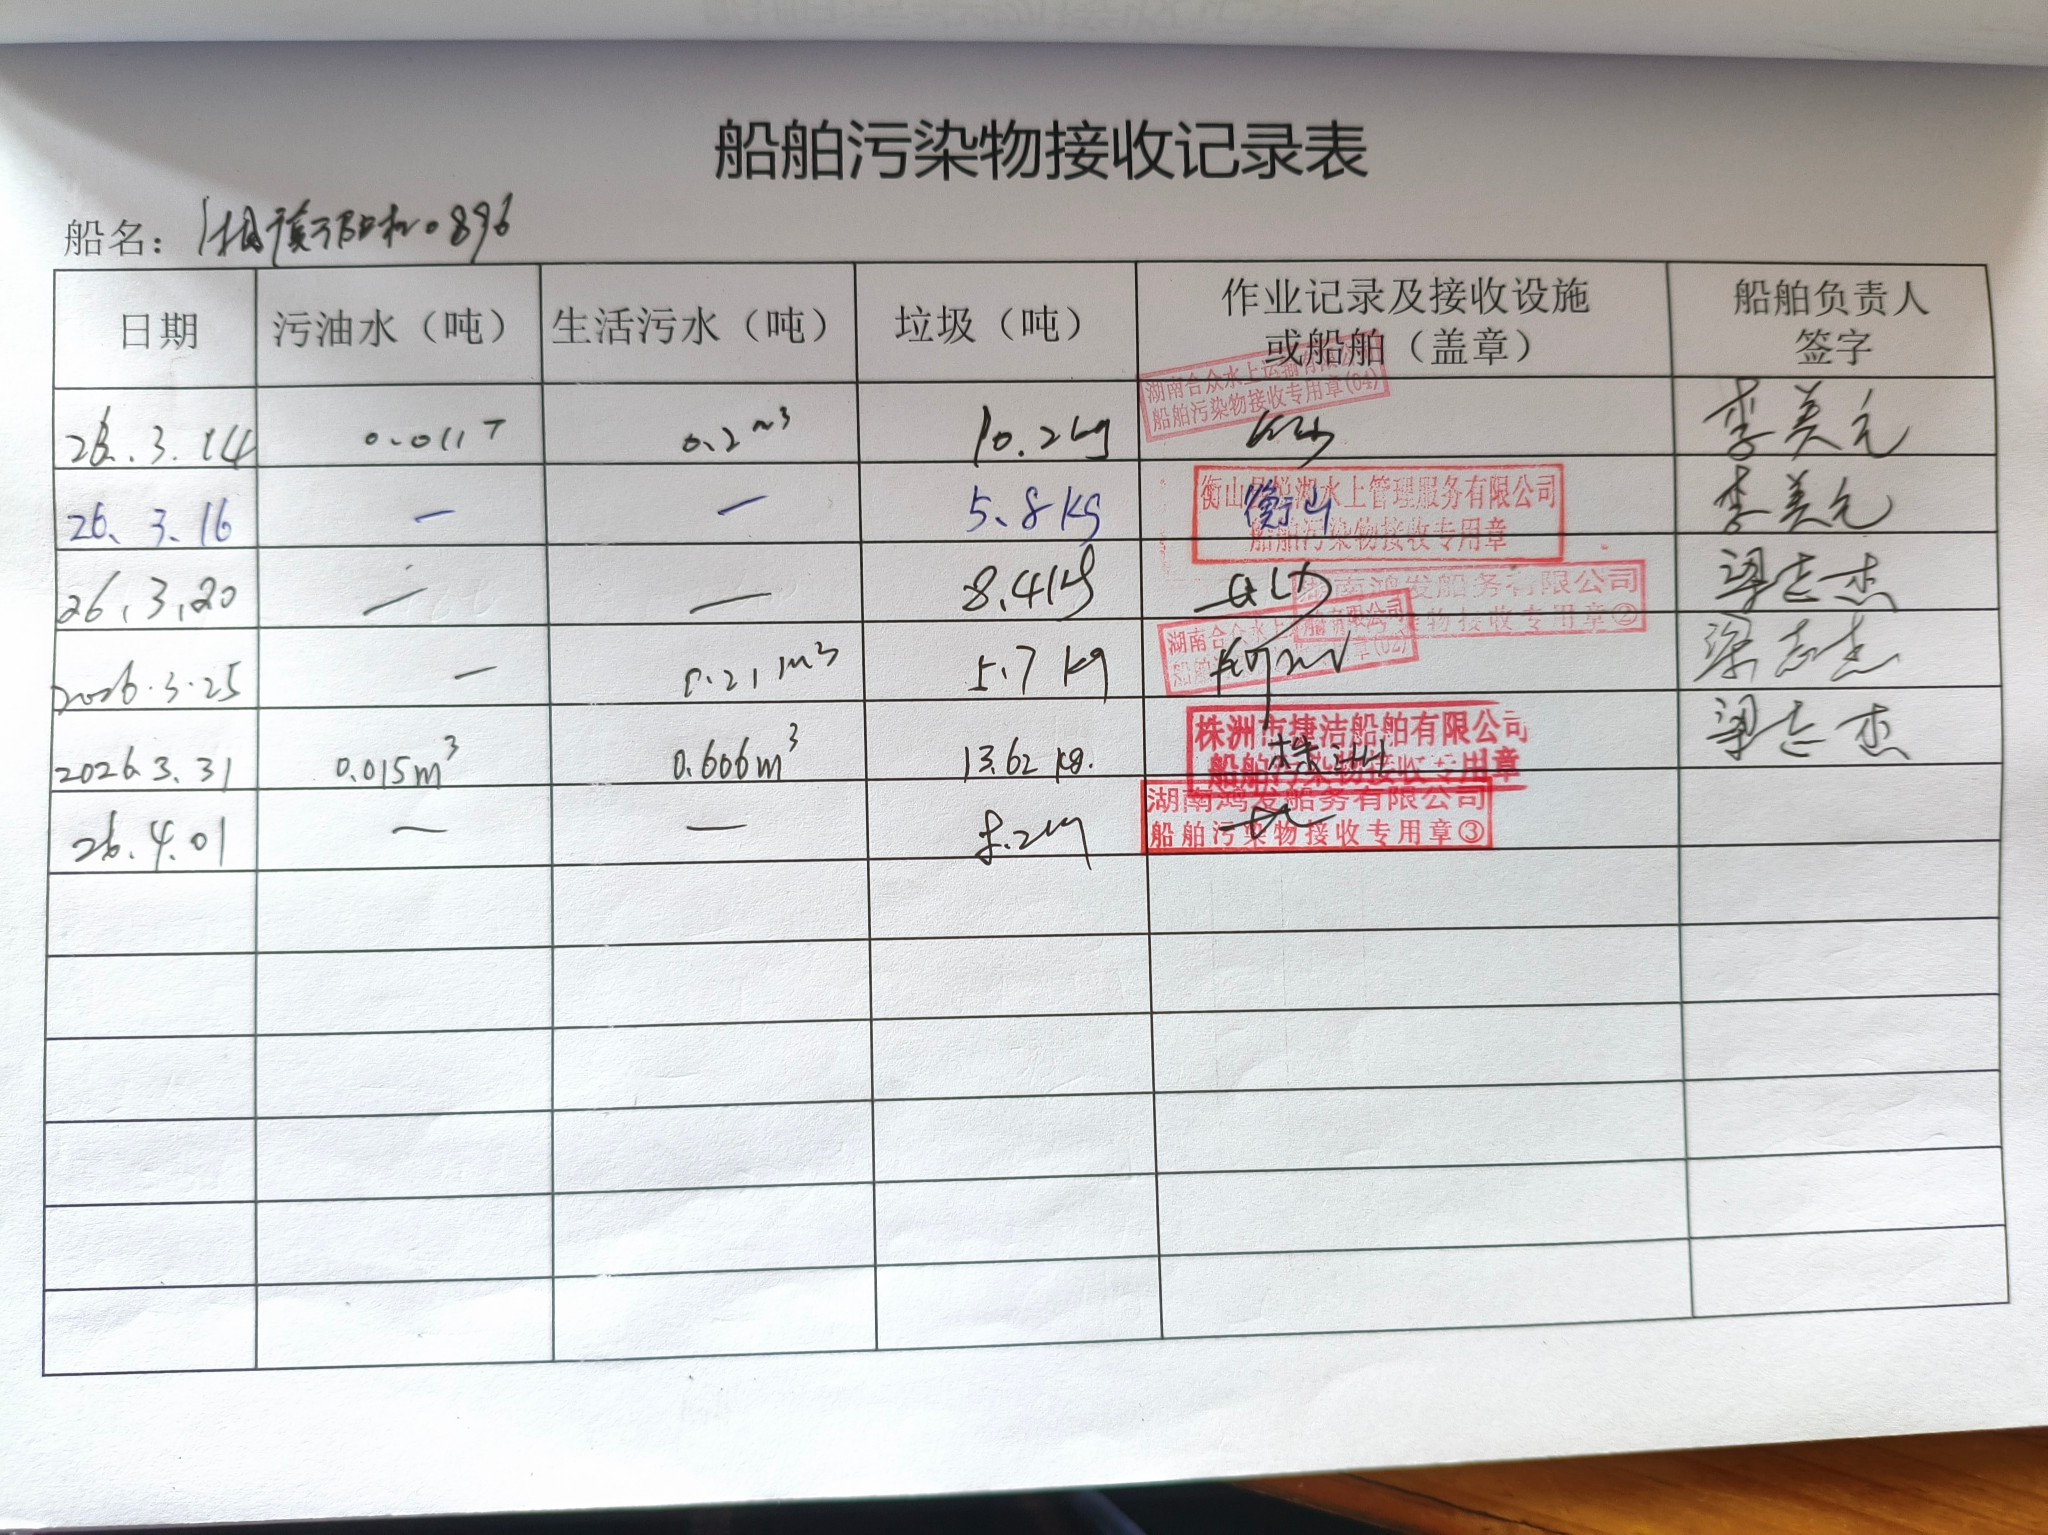 船舶污染物接收记录表
船名：湘 0896
日期 污油水（吨） 生活污水（吨） 垃圾（吨） 作业记录及接收设施或船舶（盖章） 船舶负责人签字
湖南合众水上运输有限公司
船舶污染物接收专用章(04)
26.3.14 0.011T 0.2m³ 10.2kg 李美元
衡山县悦湖水上管理服务有限公司
船舶污染物接收专用章
26.3.16 — — 5.8kg 衡山 李美元
湖南鸿发船务有限公司
物接收专用章②
26.3.20 — — 8.4kg 梁志杰
湖南合众水上
(02)
2026.3.25 — 0.21m³ 5.7kg 梁志杰
株洲市捷洁船舶有限公司
船舶污染物接收专用章
2026.3.31 0.015m³ 0.606m³ 13.62kg. 株洲 梁志杰
湖南鸿发船务有限公司
船舶污染物接收专用章③
26.4.01 — — 8.2kg